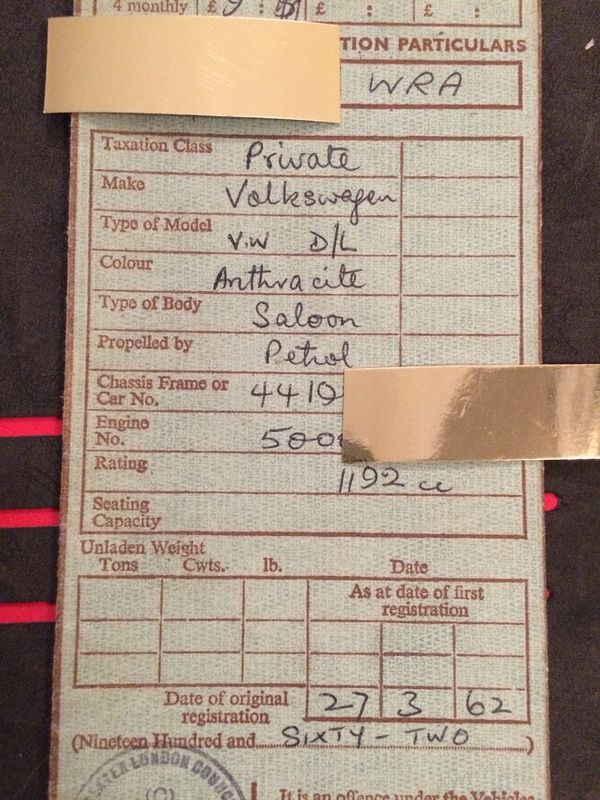 4 monthly £ 9 : £ : £ :
TION PARTICULARS
WRA
Taxation Class Private
Make Volkswagen
Type of Model V.W D/L
Colour Anthracite
Type of Body Saloon
Propelled by Petrol
Chassis Frame or
Car No. 4419
Engine
No. 500
Rating 1192 cc
Seating
Capacity
Unladen Weight
Tons Cwts. lb. Date
As at date of first
registration
Date of original
registration 27 3 62
(Nineteen Hundred and SIXTY - TWO )
EATER LONDON COUNC
It is an offence under the Vehicles